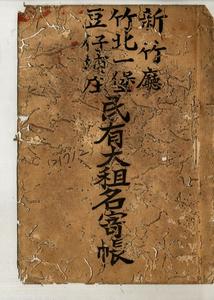 新竹廳
竹北一堡
豆仔埔庄
民有大租名寄帳